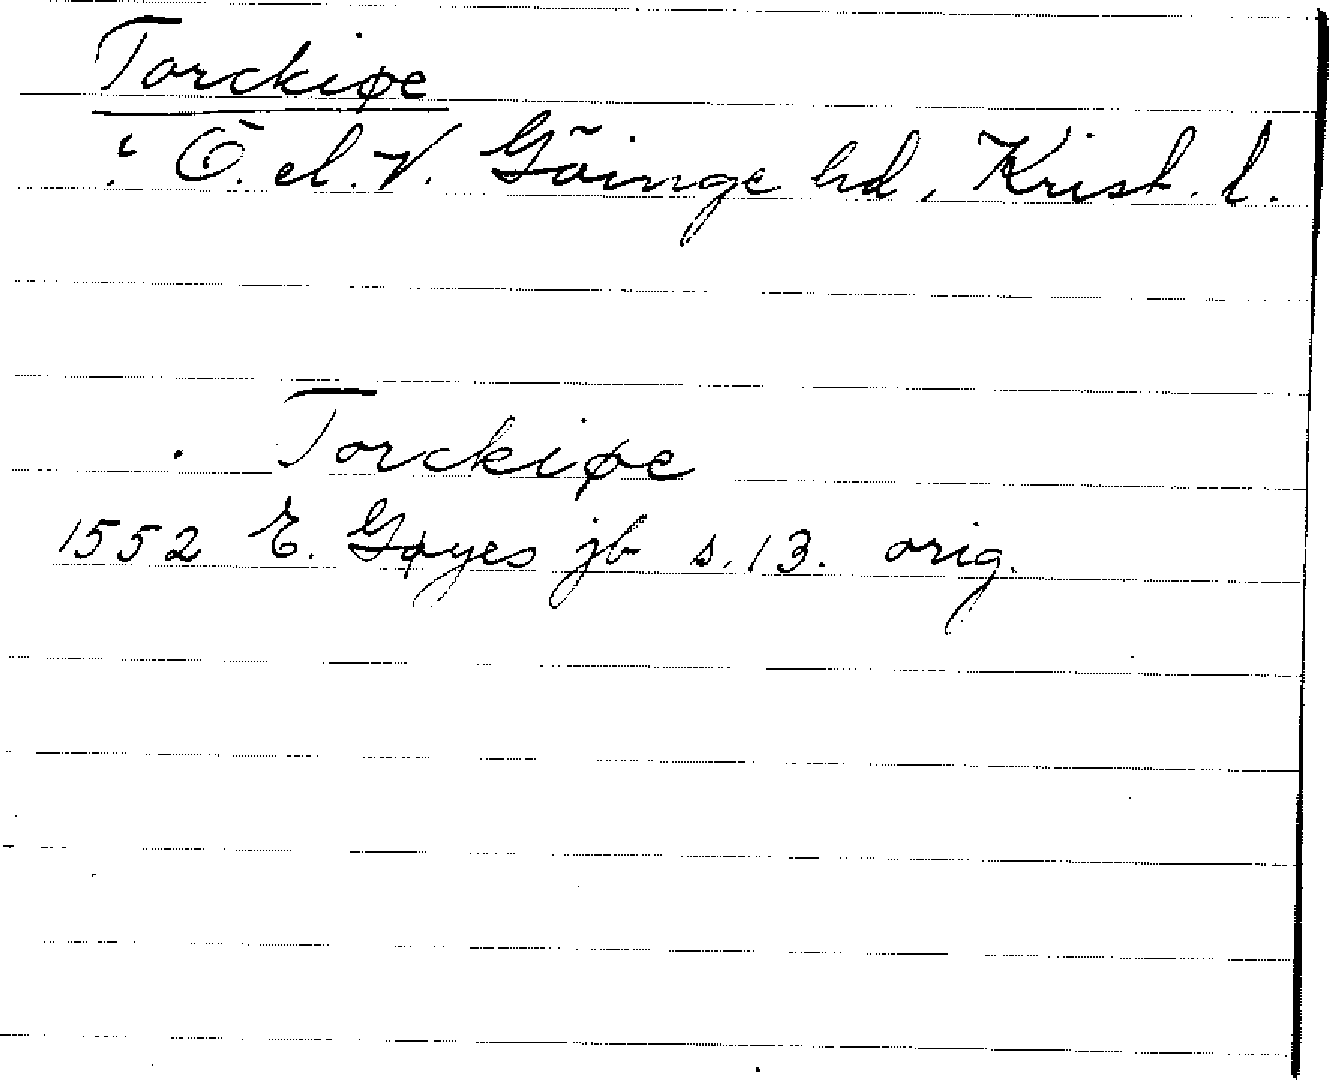 Torckiøe
i Ö. el. V. Göinge hd, Krist. l.
Torckiøe
1552 E. Gøyes jb s. 13. orig.